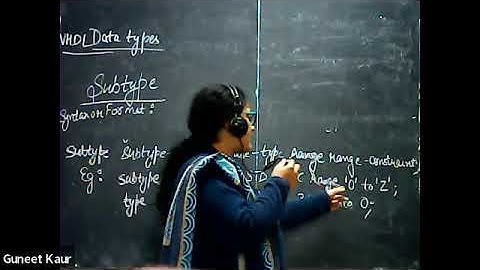 VHDL Data types
Subtype
Syntax or Format:
Subtype Subtype - type range range-constraint;
Eg: subtype range '0' to 'Z';
type 0;
Guneet Kaur